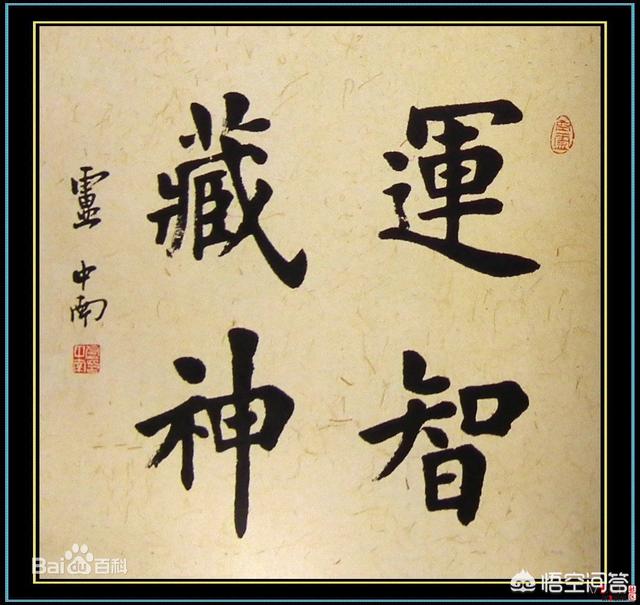 運智
藏神
盧中南
Bai 百科
悟空问答